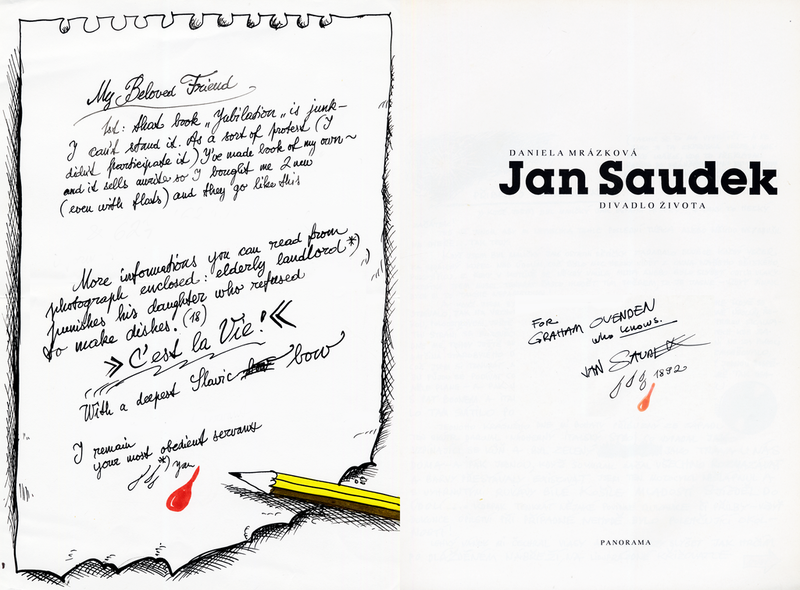 My Beloved Friend
1st: that book „Jubilation„ is junk–
I can't stand it. As a sort of protest (I
didn't participate it) I've made book of my own~
and it sells awrite so I bought me 2 new
(even with flats) and they go like this
More informations you can read from
photograph enclosed: elderly landlord*)
punishes his daughter who refused
to make dishes. (18)
» C'est la Vie! «
With a deepest Slavic bow
I remain
your most obedient servant
*) you
DANIELA MRÁZKOVÁ
Jan Saudek
DIVADLO ŽIVOTA
FOR
GRAHAM OVENDEN
who knows.
JAN SAUDEK
1892
PANORAMA